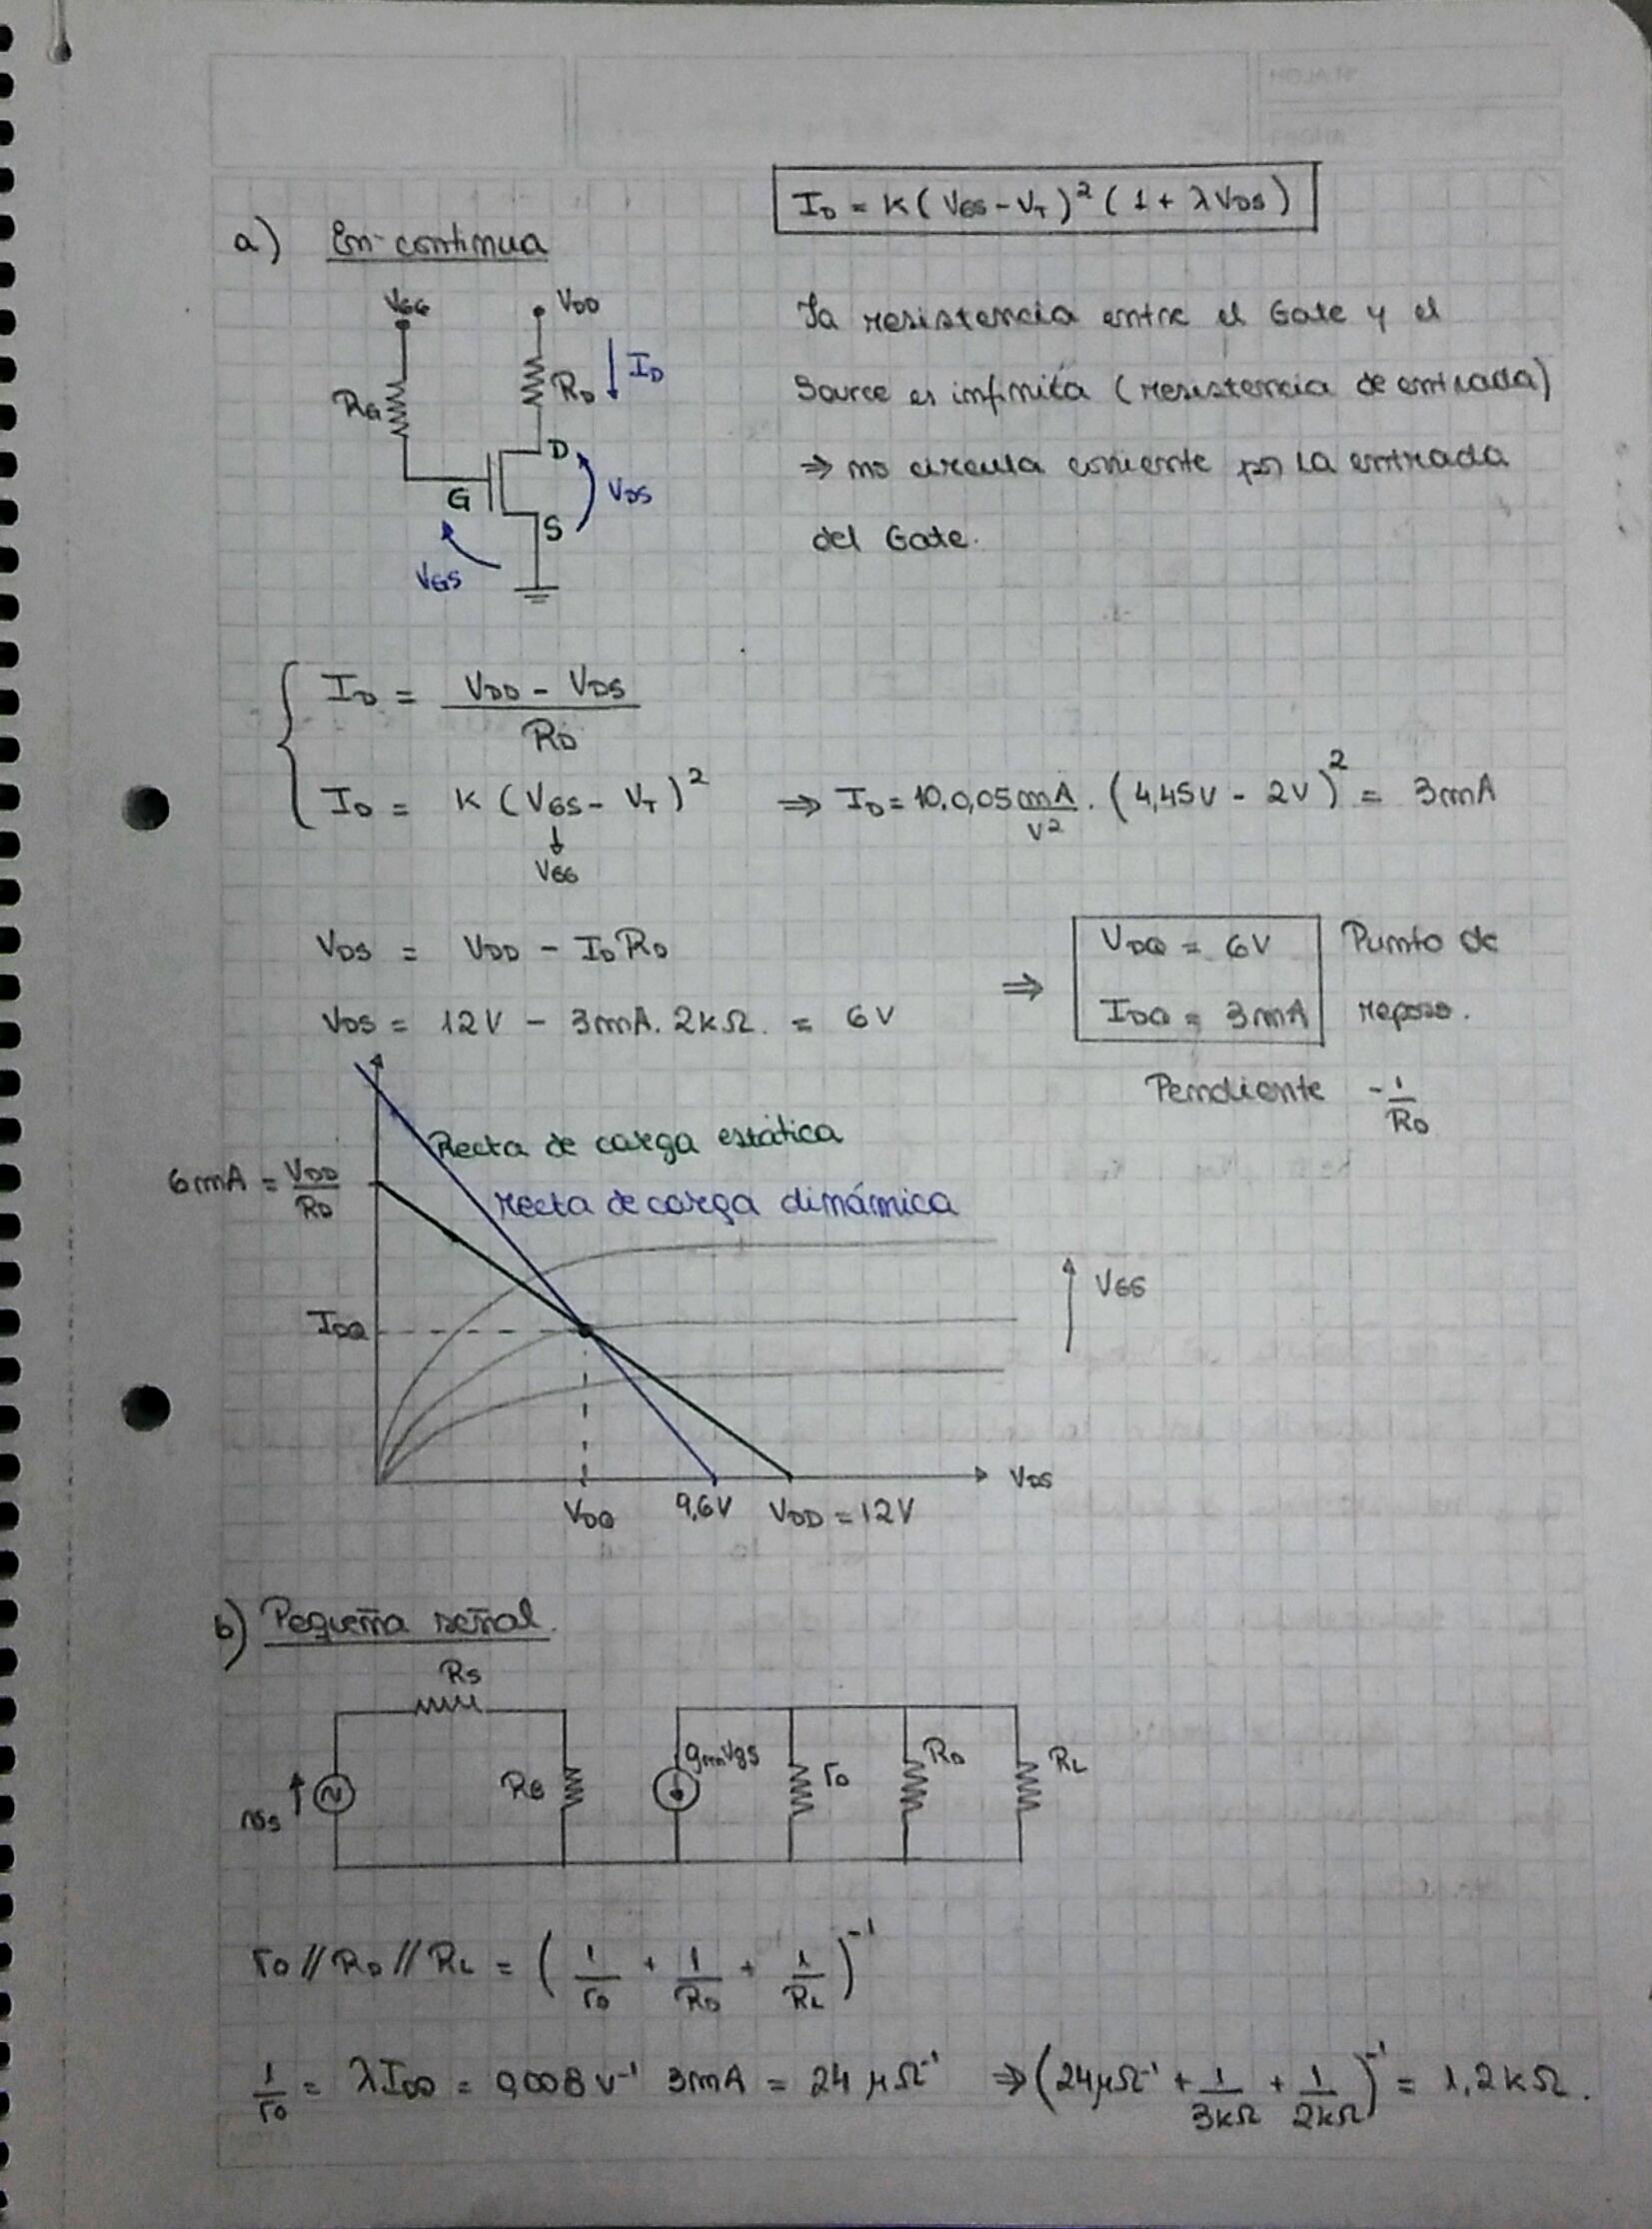 I_D = K (V_GS - V_T)² (1 + λ V_DS)
a) En continua
V_GG V_DD
R_G R_D I_D
D
G V_DS
S
V_GS
La resistencia entre el Gate y el
Source es infinita (resistencia de entrada)
⇒ no circula corriente por la entrada
del Gate.
I_D = (V_DD - V_DS) / R_D
I_D = K (V_GS - V_T)² ⇒ I_D = 10.0,05 mA/V² . (4,45V - 2V)² = 3mA
↓
V_GG
V_DS = V_DD - I_D R_D
V_DS = 12V - 3mA. 2kΩ. = 6V
⇒ V_DQ = 6V Punto de
I_DQ = 3mA reposo.
Pendiente -1/R_D
Recta de carga estática
6mA = V_DD/R_D
recta de carga dinámica
V_GS
I_DQ
V_DS
V_DQ 9,6V V_DD = 12V
b) Pequeña señal.
R_S
g_m v_gs R_D R_L
R_G r_o
v_s
r_o // R_D // R_L = (1/r_o + 1/R_D + 1/R_L)⁻¹
1/r_o = λ I_DQ = 0,008 V⁻¹ 3mA = 24 μΩ⁻¹ ⇒ (24μΩ⁻¹ + 1/3kΩ + 1/2kΩ)⁻¹ = 1,2kΩ.